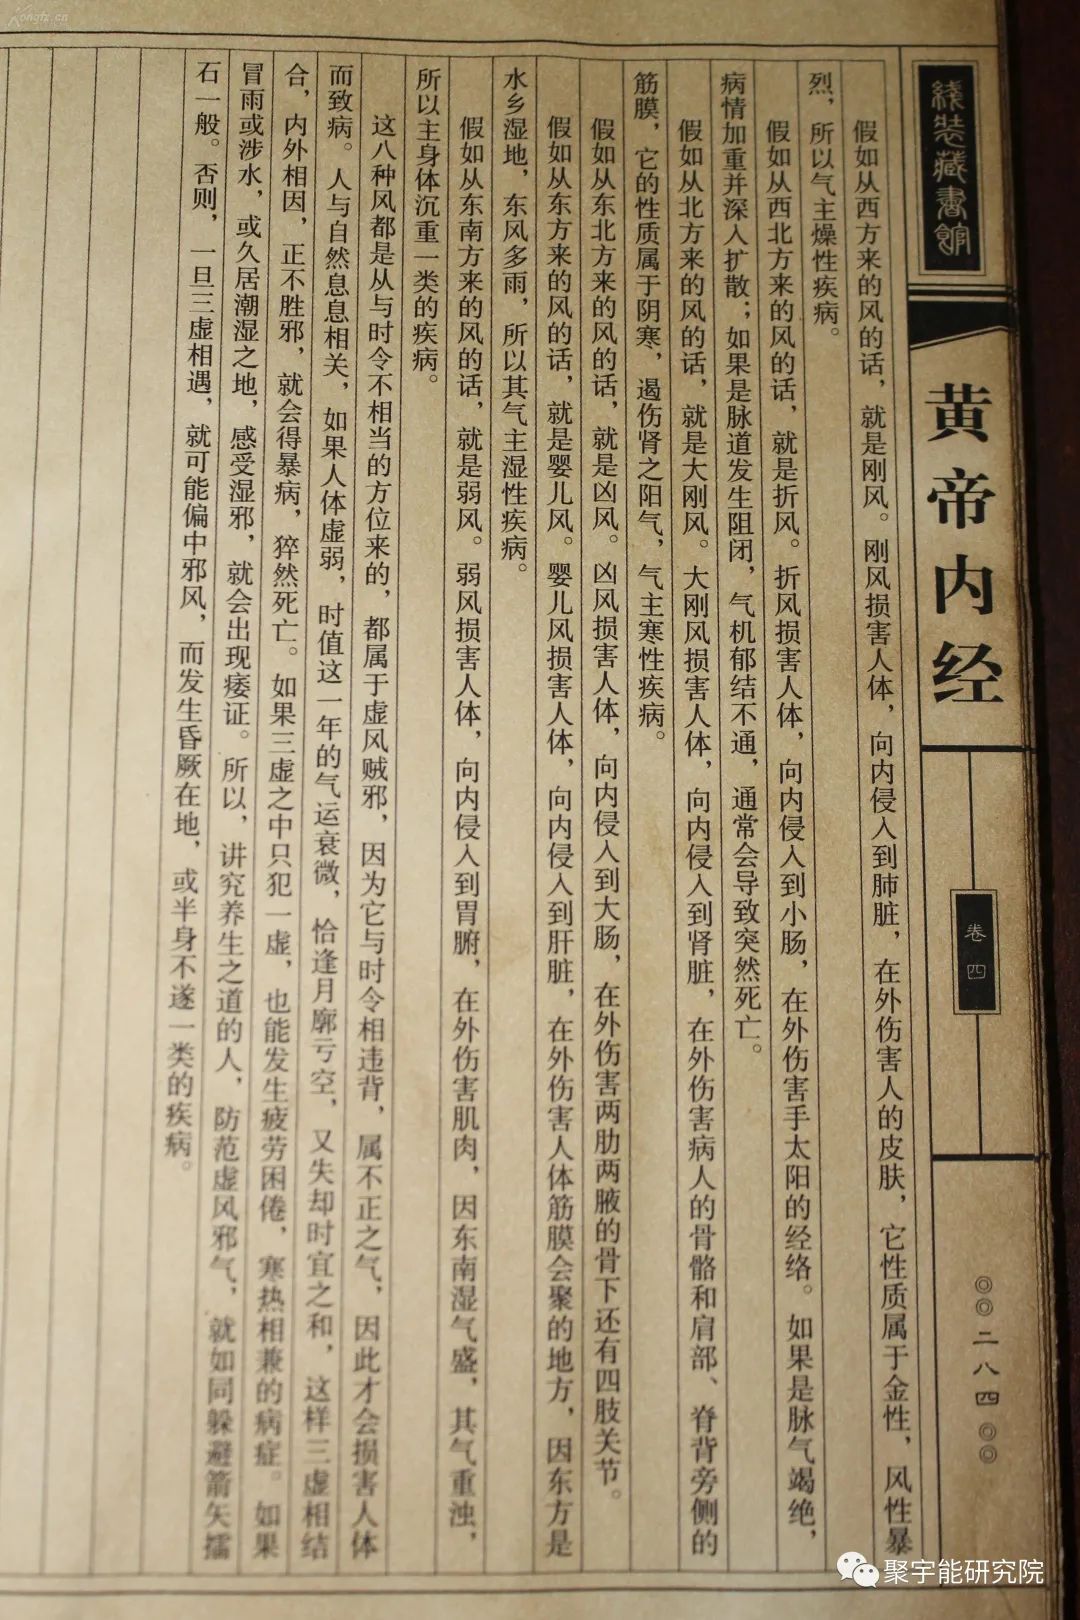 Kongfz.cn
线装藏书馆
黄帝内经
卷四
◎◎二八四◎◎
假如从西方来的风的话，就是刚风。刚风损害人体，向内侵入到肺脏，在外伤害人的皮肤，它性质属于金性，风性暴
烈，所以气主燥性疾病。
假如从西北方来的风的话，就是折风。折风损害人体，向内侵入到小肠，在外伤害手太阳的经络。如果是脉气竭绝，
病情加重并深入扩散；如果是脉道发生阻闭，气机郁结不通，通常会导致突然死亡。
假如从北方来的风的话，就是大刚风。大刚风损害人体，向内侵入到肾脏，在外伤害病人的骨骼和肩部、脊背旁侧的
筋膜，它的性质属于阴寒，遏伤肾之阳气，气主寒性疾病。
假如从东北方来的风的话，就是凶风。凶风损害人体，向内侵入到大肠，在外伤害两肋两腋的骨下还有四肢关节。
假如从东方来的风的话，就是婴儿风。婴儿风损害人体，向内侵入到肝脏，在外伤害人体筋膜会聚的地方，因东方是
水乡湿地，东风多雨，所以其气主湿性疾病。
假如从东南方来的风的话，就是弱风。弱风损害人体，向内侵入到胃腑，在外伤害肌肉，因东南湿气盛，其气重浊，
所以主身体沉重一类的疾病。
这八种风都是从与时令不相当的方位来的，都属于虚风贼邪，因为它与时令相违背，属不正之气，因此才会损害人体
而致病。人与自然息息相关，如果人体虚弱，时值这一年的气运衰微，恰逢月廓亏空，又失却时宜之和，这样三虚相结
合，内外相因，正不胜邪，就会得暴病，猝然死亡。如果三虚之中只犯一虚，也能发生疲劳困倦，寒热相兼的病症。如果
冒雨或涉水，或久居潮湿之地，感受湿邪，就会出现痿证。所以，讲究养生之道的人，防范虚风邪气，就如同躲避箭矢擂
石一般。否则，一旦三虚相遇，就可能偏中邪风，而发生昏厥在地，或半身不遂一类的疾病。
聚宇能研究院